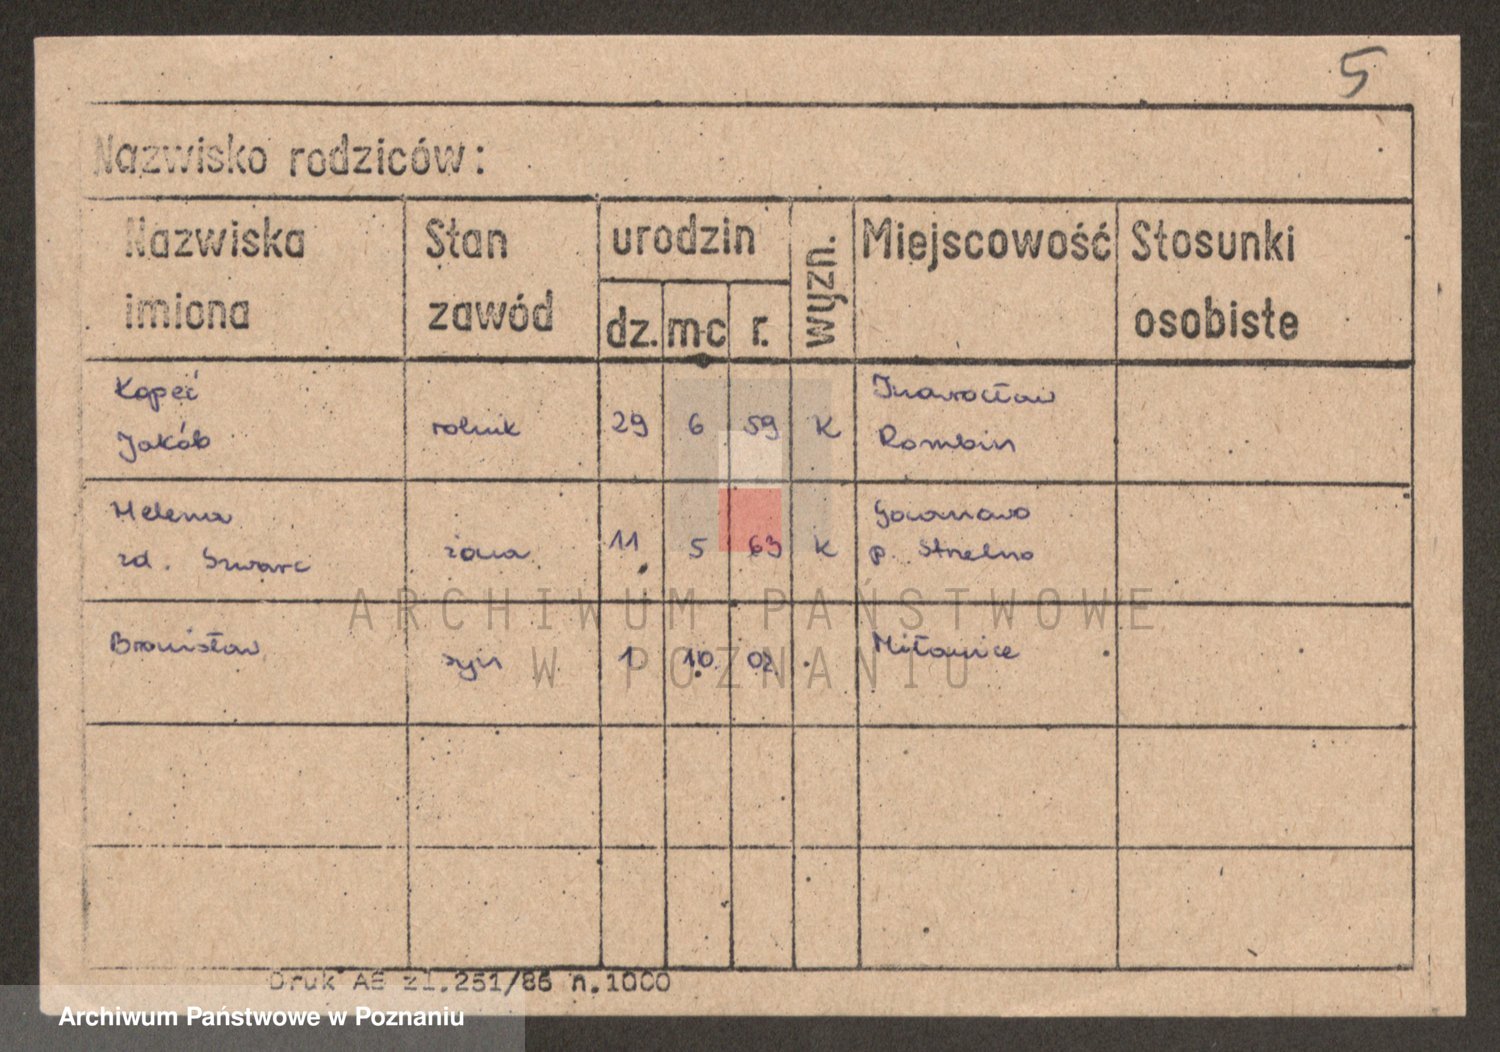 5
Nazwisko rodziców:
Nazwiska imiona
Stan zawód
urodzin
dz. m-c r.
wyzn.
Miejscowość
Stosunki osobiste
Kopeć
Jakób
rolnik 29 6 59 K
Inowrocław
Rombin
Helena
zd. Szwarc
żona 11 5 63 K
p. Strzelno
Bronisław
syn 1 10 02
Miławice
ARCHIWUM PAŃSTWOWE
W POZNANIU
Druk AS zl.251/86 n.1000
Archiwum Państwowe w Poznaniu